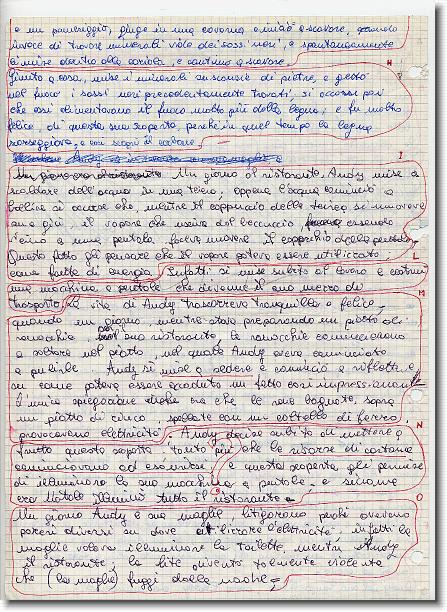 e un pomeriggio, giunse in una caverna e iniziò a scavare, quando
invece di trovare minerali vide dei sassi neri, e spontaneamente
si mise dentro alla carriola, e continuò a scavare.
Giunto a casa, mise i minerali su scansie di pietre, e gettò H
nel fuoco i sassi neri precedentemente trovati, si accorse poi
che essi alimentavano il fuoco molto più della legna; e fu molto
felice, di questa sua scoperta perché in quel tempo la legna
scarseggiava, e così scoprì il carbone.
I
Un giorno al ristorante, Andy mise a
scaldare dell'acqua in una teiera, appena l'acqua cominciò a
bollire si accorse che, mentre il coperchio della teiera si muoveva
su e giù, il vapore che usciva dal beccuccio essendo
vicino a una pentola, faceva muovere il coperchio della pentola.
Questo fatto gli pensare che il vapore poteva essere utilizzato
come fonte di energia. Infatti si mise subito al lavoro e costruì L
una macchina a pentole che divenne il suo mezzo di
trasporto. La vita di Andy trascorreva tranquilla e felice, M
quando un giorno, mentre stava preparando un piatto di
ranocchie nel suo ristorante, le ranocchie cominciarono
a saltare nel piatto, nel quale Andy aveva cominciato
a pulirle. Andy si mise a sedere e cominciò a riflettere
su come poteva essere accaduto un fatto così impressionante
l'unica spiegazione era che le rane bagnate, sopra
un piatto di zinco spellate con un coltello di ferro,
provocavano elettricità. Andy decise subito di mettere a N
frutto questa scoperta, tanto più che le risorse di carbone
cominciavano ad esaurirsi, e questa scoperta gli permise
di illuminare la sua macchina a pentole, e siccome
era Natale illuminò tutto il ristorante.
Un giorno Andy e sua moglie litigarono perché avevano O
pareri diversi su dove utilizzare l'elettricità, infatti la
moglie voleva illuminare la toilette, mentre Andy
il ristorante, la lite diventò talmente violenta
che (la moglie) fuggì dalla madre.